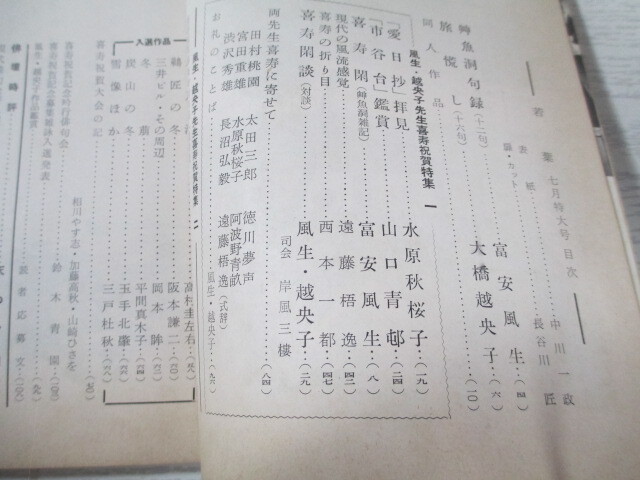 若葉 七月特大号 目次
表紙 中川一政
扉・カット 長谷川匠
鱒魚洞句録(十二句) 富安風生(四)
旅慌し(十六句) 大橋越央子(六)
同人作品(一〇)
風生・越央子先生喜寿祝賀特集 一
「愛日抄」拝見 水原秋桜子(一九)
「市谷台」鑑賞 山口青邨(二四)
喜寿閑(鱒魚洞雑記) 富安風生(八)
現代の風流感覚 遠藤梧逸(四二)
喜寿の折り目 西本一都(四七)
喜寿閑談(対談) 風生・越央子(二九)
司会 岸風三樓
両先生喜寿に寄せて(八四)
田村桃園 太田三郎 徳川夢声
富田重雄 水原秋桜子 阿波野青畝
渋沢秀雄 長沼弘毅 遠藤梧逸(式辞)
お礼のことば 風生・越央子(九六)
風生・越央子先生喜寿祝賀特集 二
入選作品
鵜匠の冬
三井ビル・その周辺 阪本謙二
冬 岡本眸
炭山の冬 平間真木子
雪像ほか 玉手北肇
三戸杜秋
喜寿祝賀大会の記
相川やす志・加藤高秋・山崎ひさを
鈴木青園
風生・越央子作品鑑賞 読者応募文
俳壇時評